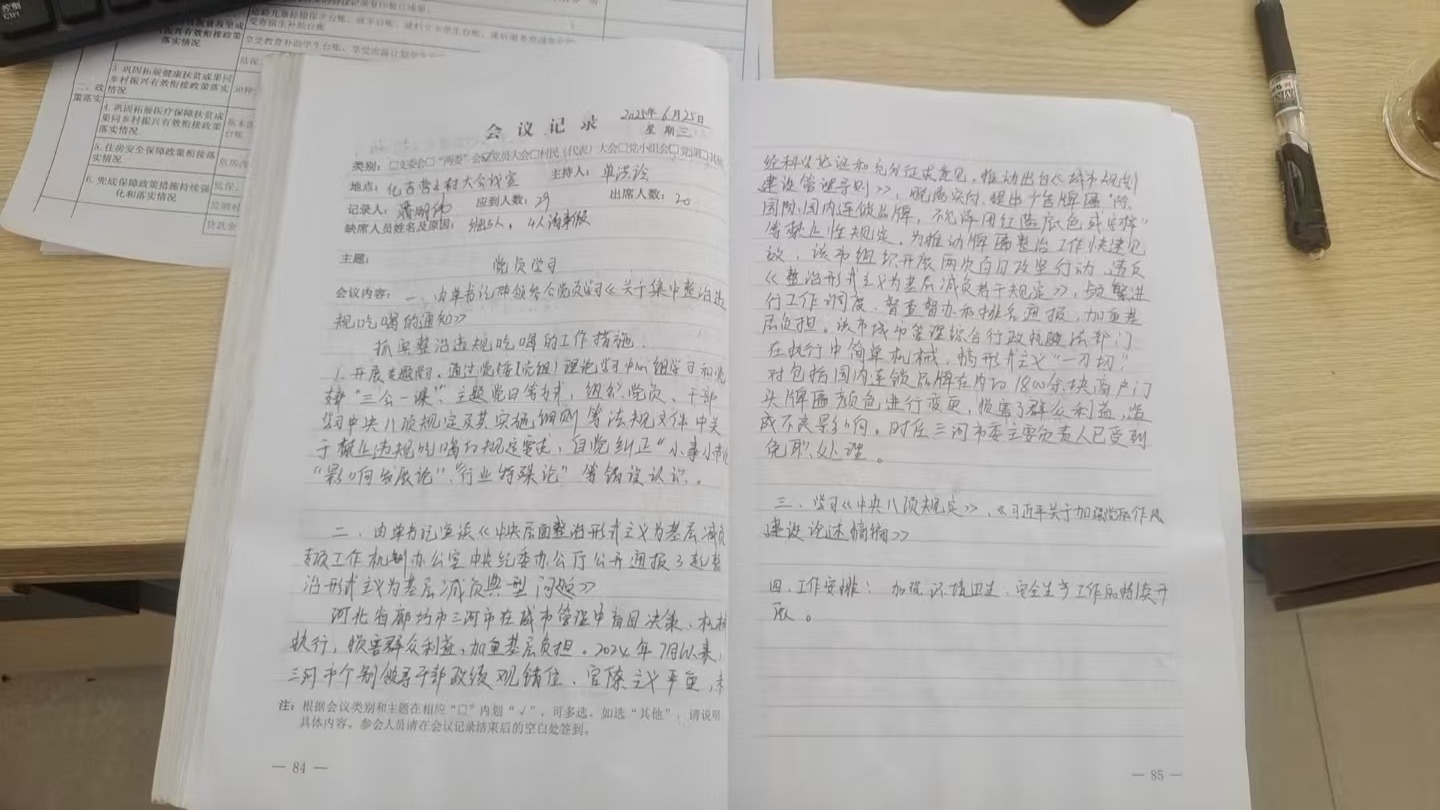 控制
Ctrl
享受教育补助学生台账、享受雨露计划
乡村振兴有效衔接政策
落实情况
3. 巩固拓展健康扶贫成果同
乡村振兴有效衔接政策落实
情况
二、政
策落实
4. 巩固拓展医疗保障扶贫成
果同乡村振兴有效衔接政策
落实情况
5. 住房安全保障政策衔接落
实情况
6. 兜底保障政策措施持续强
化和落实情况
会议记录
2025年6月25日
星期三
类别:□支委会□“两委”会☑党员大会□村民(代表)大会□党小组会□党课□其他
地点: 村大会议室 主持人: 单
记录人: 应到人数:29 出席人数:20
缺席人员姓名及原因: 外出5人。4人请事假
主题: 党员学习
会议内容: 一、由单书记带领参会党员学习《关于集中整治违
规吃喝的通知》
抓实整治违规吃喝的工作措施.
1. 开展专题学习。通过党委(党组)理论学习中心组学习和党
支部“三会一课”、主题党日等方式,组织党员、干部
学习中央八项规定及其实施细则等法规文件中关
于禁止违规吃喝的规定要求,自觉纠正“小事小节论
“影响发展论”、“行业特殊论”等错误认识。
二、由单书记宣读《中央层面整治形式主义为基层减负
专项工作机制办公室 中央纪委办公厅公开通报3起整
治形式主义为基层减负典型问题》
河北省廊坊市三河市在城市管理中盲目决策、机械
执行,损害群众利益,加重基层负担。2024年7月以来,
三河市个别领导干部政绩观错位、官僚主义严重,未
注: 根据会议类别和主题在相应“□”内划“√”,可多选。如选“其他”,请说明
具体内容。参会人员请在会议记录结束后的空白处签到。
— 84 —
经科学论证和充分征求意见,推动出台《城市规划
建设管理导则》,脱离实际,提出广告牌匾“除
国际、国内连锁品牌,不允许用红蓝底色或字样”
等禁止性规定。为推动牌匾整治工作快速见
效,该市组织开展两次百日攻坚行动,违反
《整治形式主义为基层减负若干规定》,频繁进
行工作调度、督查督办和排名通报,加重基
层负担。该市城市管理综合行政执法部门
在执行中简单机械,搞形式主义“一刀切”
对包括国内连锁品牌在内的1800余块商户门
头牌匾颜色进行变更,损害了群众利益,造
成不良影响。时任三河市委主要负责人已受到
免职处理。
三、学习《中央八项规定》、《习近平关于加强党的作风
建设论述摘编》
四、工作安排: 加强环境卫生、安全生产工作的持续开
展。
— 85 —